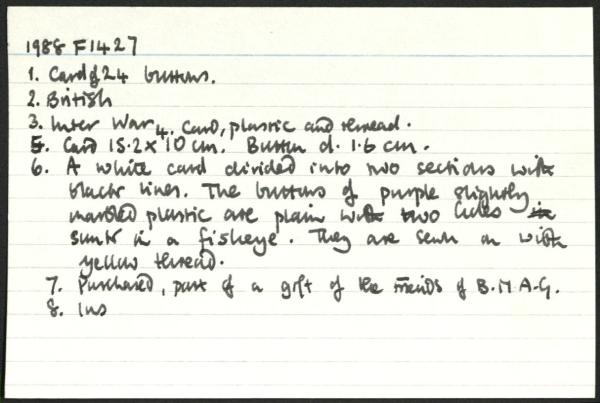 1988 F1427
1. Card of 24 buttons.
2. British
3. Inter War 4. Card, plastic and thread.
5. Card 15.2 x 10 cm. Button d. 1.6 cm.
6. A white card divided into two sections with
black lines. The buttons of purple slightly
marbled plastic are plain with two holes in
sunk in a fisheye. They are sewn on with
yellow thread.
7. Purchased, part of a gift of the Friends of B.M.A.G.
8. Ins